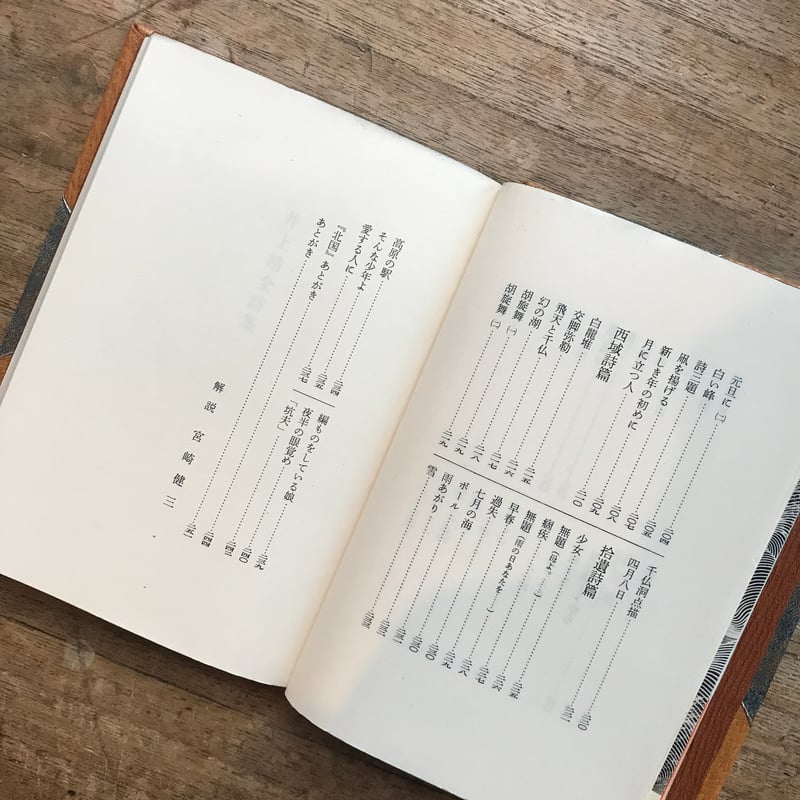 元旦に(二)……二〇四
白い峰……二〇五
詩三題……二〇七
凧を揚げる……二〇八
新しき年の初めに……二〇九
月に立つ人……二一〇
西域詩篇
白龍堆……二一五
交脚弥勒……二一六
飛天と千仏……二一七
幻の湖……二一八
胡旋舞(一)……二一九
胡旋舞(二)……二一九
千仏洞点描……二二〇
四月八日
拾遺詩篇
少女……二二五
無題(母よ。……)……二二六
痼疾……二二七
無題(雨の日あなたを……)……二二八
早春……二二九
過失……二三〇
七月の海……二三〇
ボール……二三一
雨あがり……二三二
雪……二三三
高原の駅……二三四
そんな少年よ……二三五
愛する人に……二三七
編ものをしている娘……二三九
夜半の眼覚め……二四〇
「坑夫」……二四二
『北国』あとがき……二四四
あとがき
解説 宮崎健三